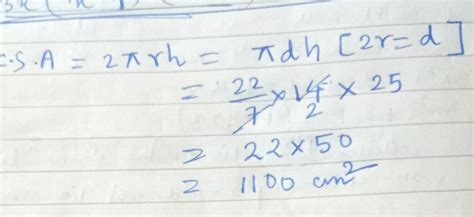 C.S.A = 2πrh = πdh [2r=d]
= 22/7 × 14 × 25
2
= 22 × 50
= 1100 cm²